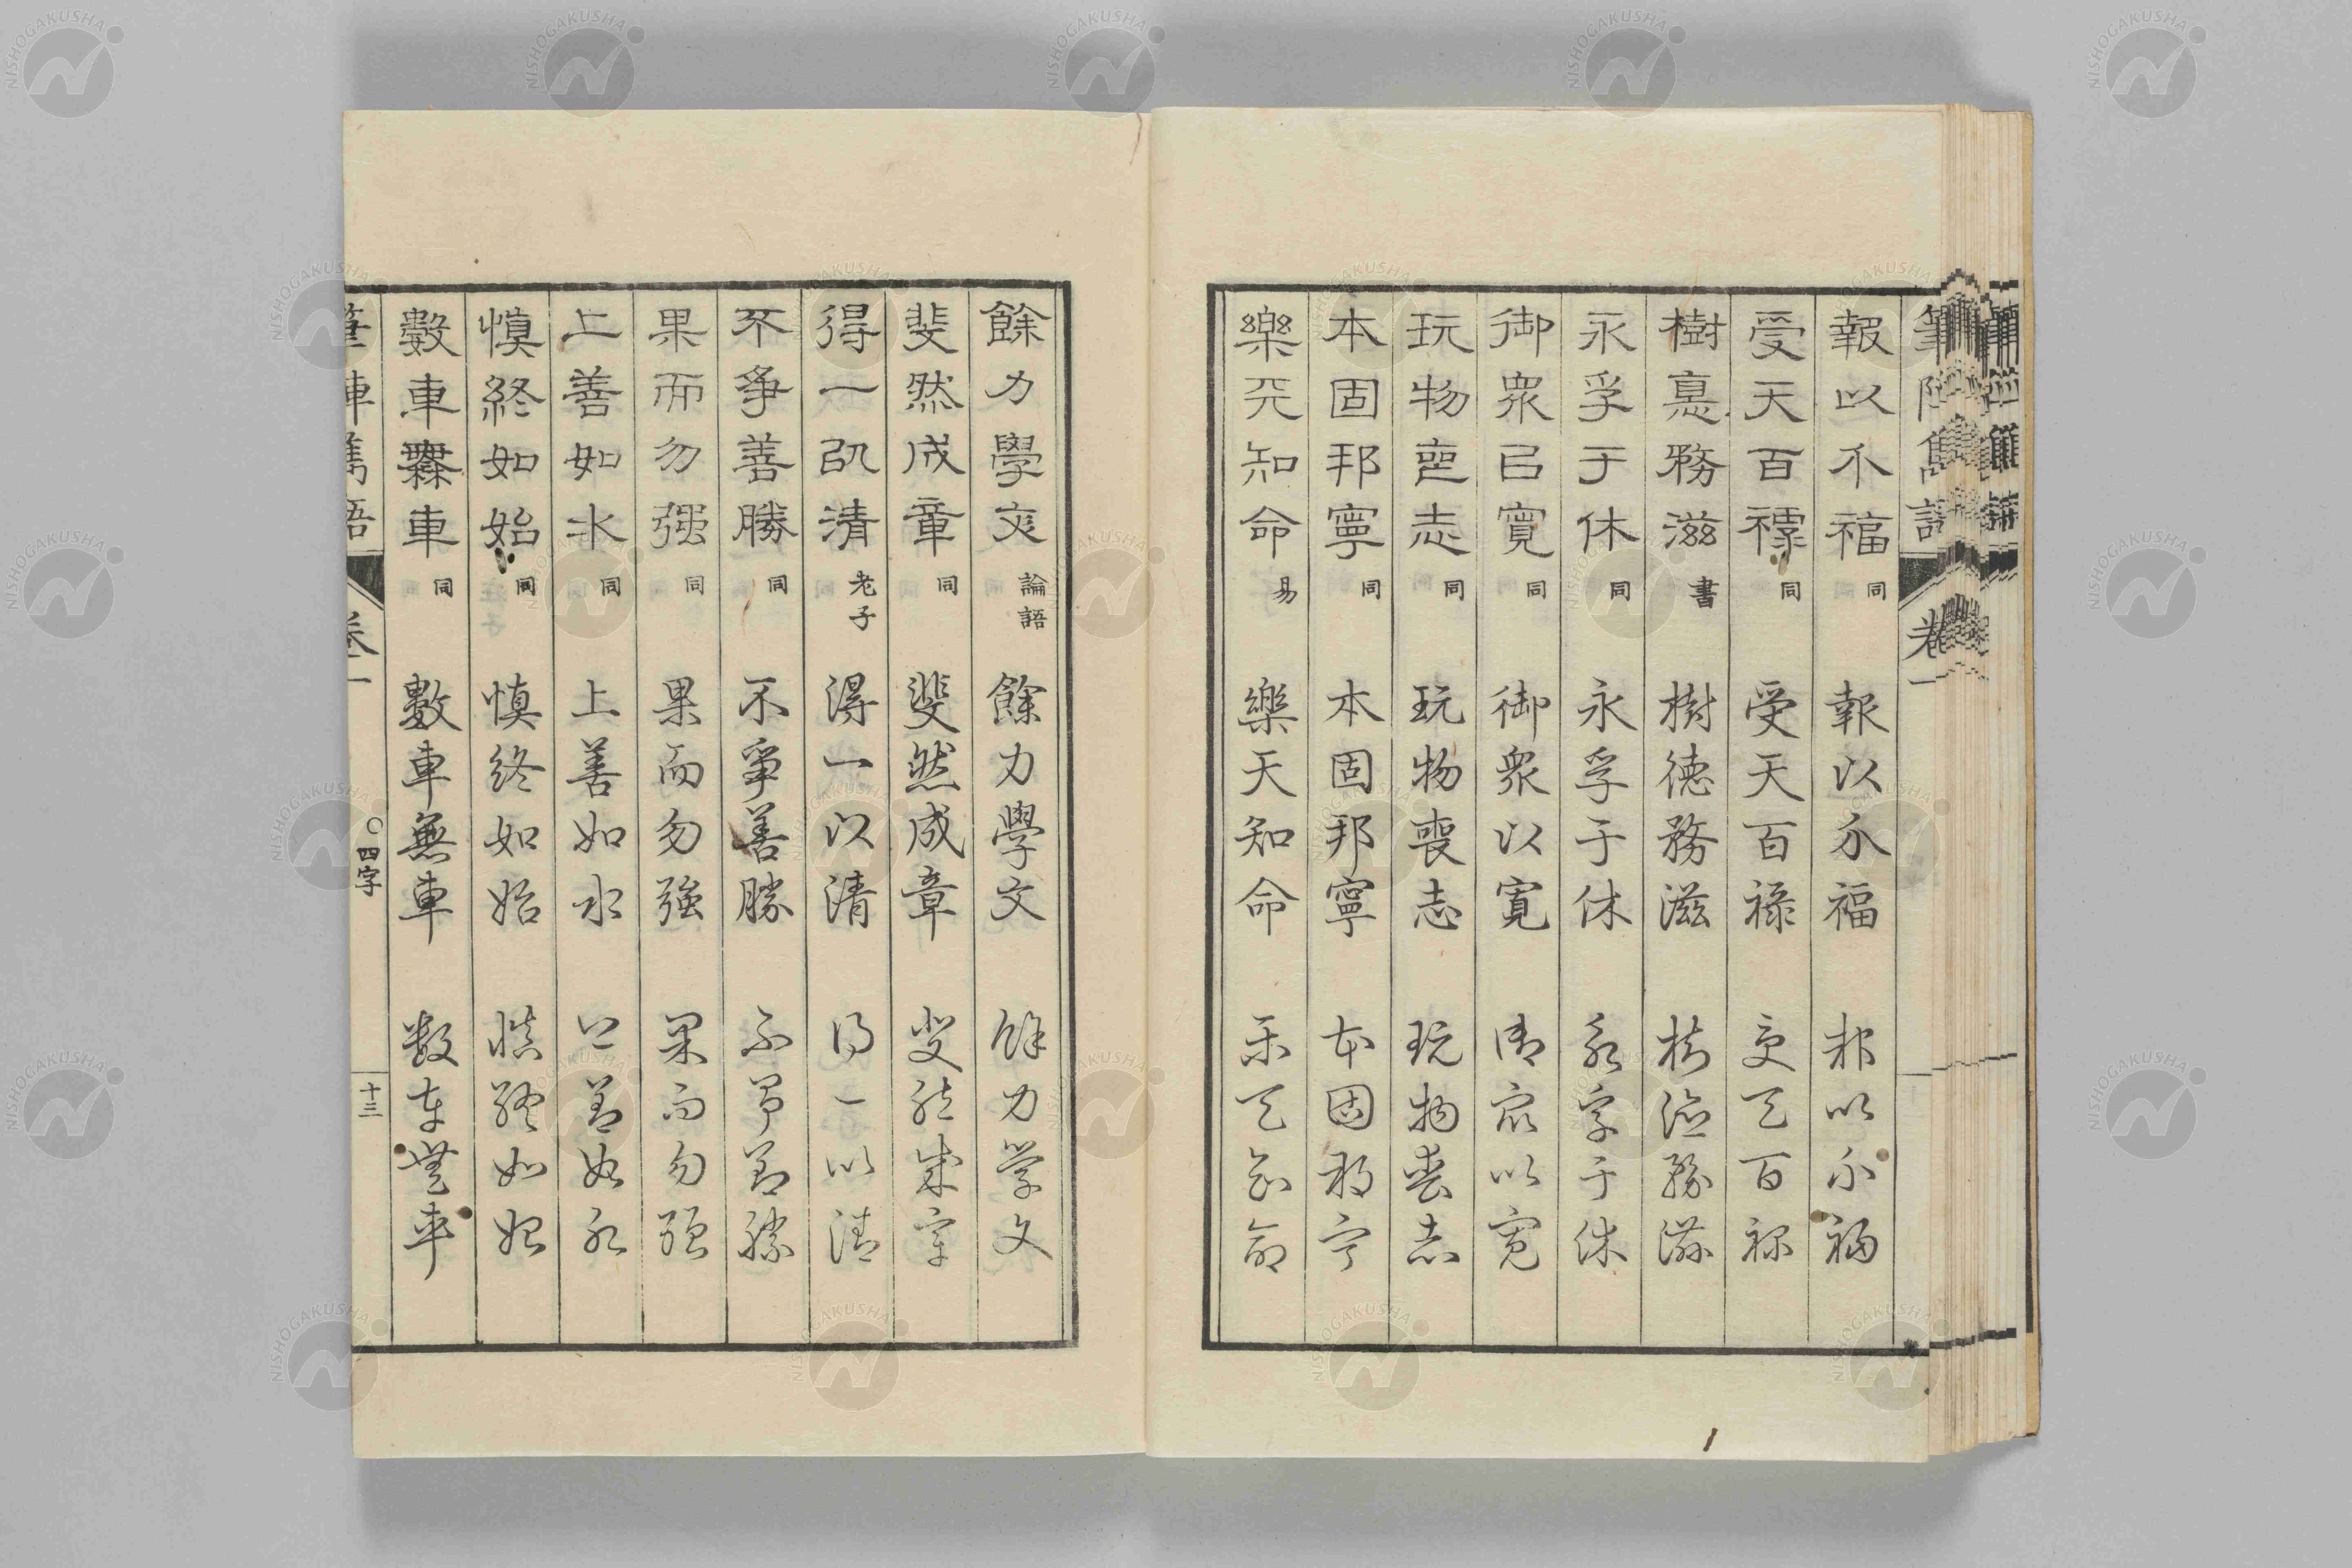 報以介福 同 報以介福 報以介福
受天百祿 同 受天百祿 受天百禄
樹悳務滋 書 樹德務滋 樹德務滋
永孚于休 同 永孚于休 永孚于休
御眾㠯寬 同 御眾以寬 御眾以寬
玩物喪志 同 玩物喪志 玩物喪志
本固邦寧 同 本固邦寧 本固邦寧
樂天知命 易 樂天知命 樂天知命
餘力學文 論語 餘力學文 餘力学文
斐然成章 同 斐然成章 斐然成章
得一㠯清 老子 得一以清 得一以清
不爭善勝 同 不爭善勝 不爭善勝
果而勿强 同 果而勿強 果而勿强
上善如水 同 上善如水 上善如水
慎終如始 同 慎終如始 慎終如始
數車無車 同 數車無車 数車無車
筆陣雋語 卷一 ○四字 十三
NISHOGAKUSHA